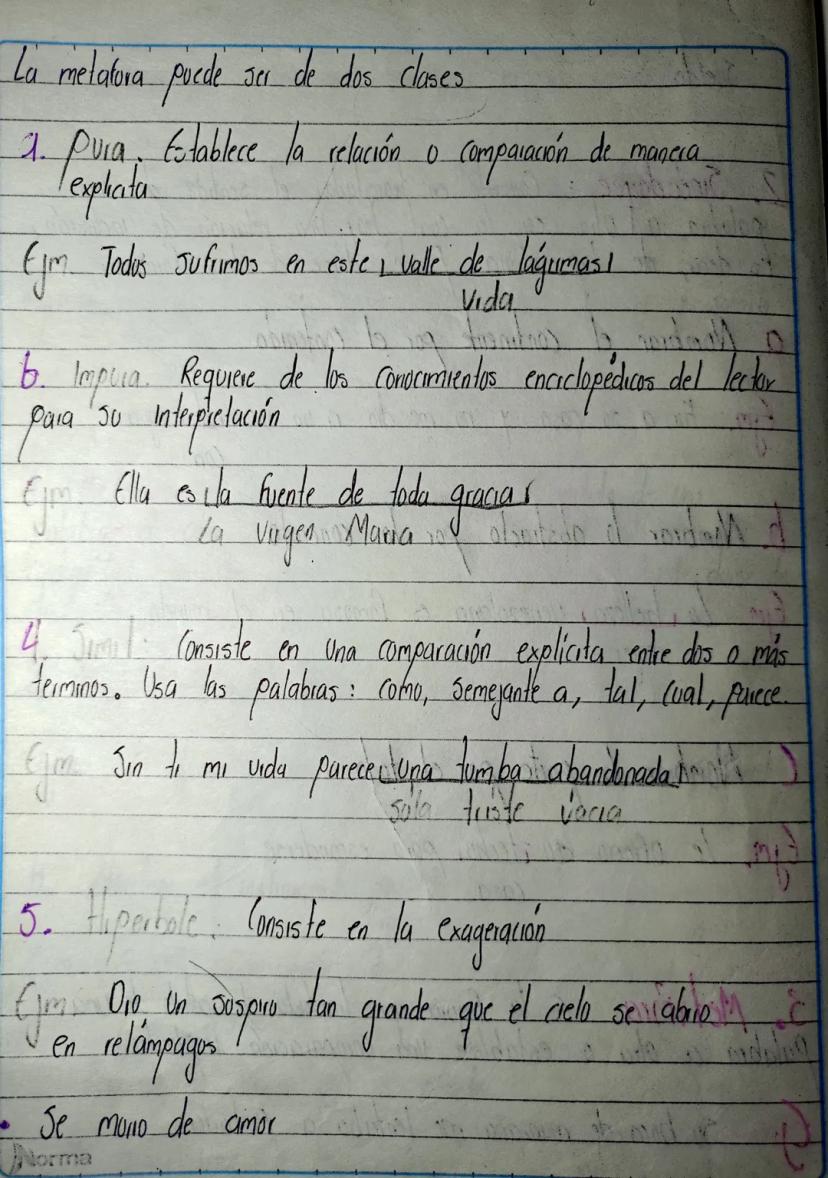 La metafora puede ser de dos clases
a. Pura. Establece la relación o comparación de manera
explicita
Ejm Todos sufrimos en este valle de lágrimas
vida
b. Impura. Requiere de los conocimientos enciclopédicos del lector
para su interpretación
Ejm Ella es la fuente de toda gracia
La virgen Maria
4. Simil: Consiste en una comparación explícita entre dos o más
terminos. Usa las palabras: como, semejante a, tal, cual, parece.
Ejm Sin ti mi vida parece una tumba abandonada
sola triste vacia
5. Hiperbole. Consiste en la exageración
Ejm. Dio un suspiro tan grande que el cielo se abrio
en relámpagos
. Se murio de amor
Norma